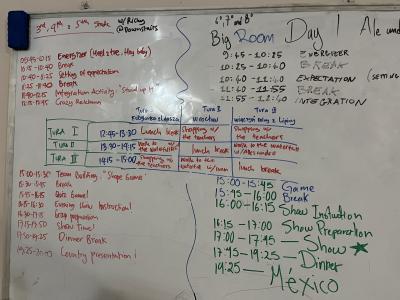 3rd, 4th & 5th grade w/ Ricky
@Downstairs
09:45-10:15 Energizer
10:15-10:40 Break
10:40-11:25 Setting of expectation
11:25-11:40 Break
11:40-12:15 Integration Activity: "Stand up if"
12:15-12:45 Crazy
6°, 7° and 8°
Big Room Day 1 Ale
9:45-10:25 Energizer
10:25-10:40 Break
10:40-11:40 Expectation
11:40-11:55 Break
11:55-12:40 Integration
Tura I
Tura II
Tura III
Tura I 12:45-13:30 Lunch break Shopping w/ the teachers Shopping w/ the teachers
Tura II 13:30-14:15 Walk to the waterfalls lunch break Walk to the waterfall w/ Alexandra
Tura III 14:15-15:00 Shopping w/ the teachers Walk to the waterfall lunch break
15:00-15:30 Team Building "Shape Game"
15:30-15:45 Break
15:45-16:15 Quiz Game!
16:15-16:30 Evening show Instruction!
16:30-17:15 Group preparation
17:15-17:50 Show Time!
17:50-19:25 Dinner Break
19:25-20:45 Country presentation!
15:00-15:45 Game
15:45-16:00 Break
16:00-16:15 Show Instruction
16:15-17:00 Show Preparation
17:00-17:45 — Show
17:45-19:25 — Dinner
19:25 — México